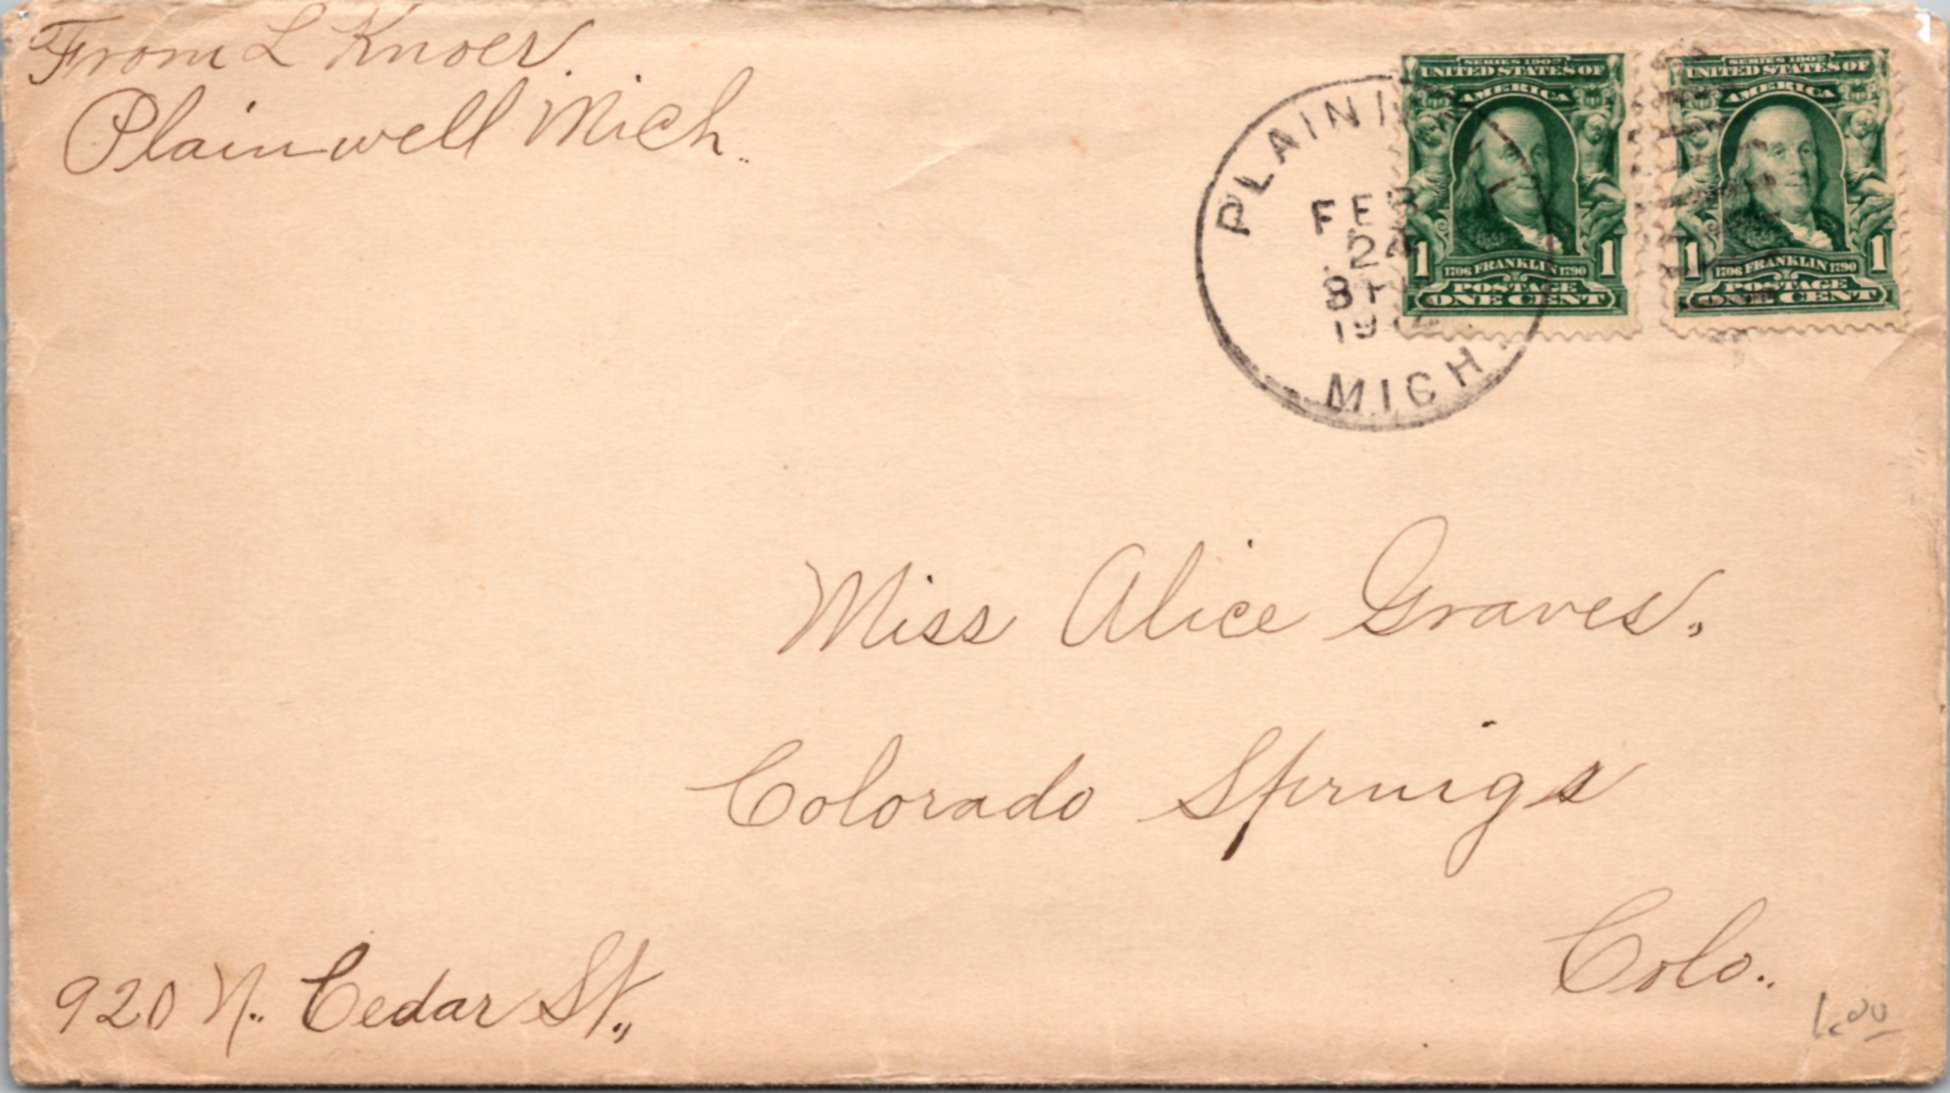 From L Knoer.
Plainwell Mich.
PLAINWELL
FEB
24
8P
MICH.
SERIES 1902
UNITED STATES OF
AMERICA
1 1706 FRANKLIN 1790 1
POSTAGE
ONE CENT
SERIES 1902
UNITED STATES OF
AMERICA
1 1706 FRANKLIN 1790 1
POSTAGE
ONE CENT
Miss Alice Graves.,
Colorado Springs
Colo..
920 N.. Cedar St.,
1.00